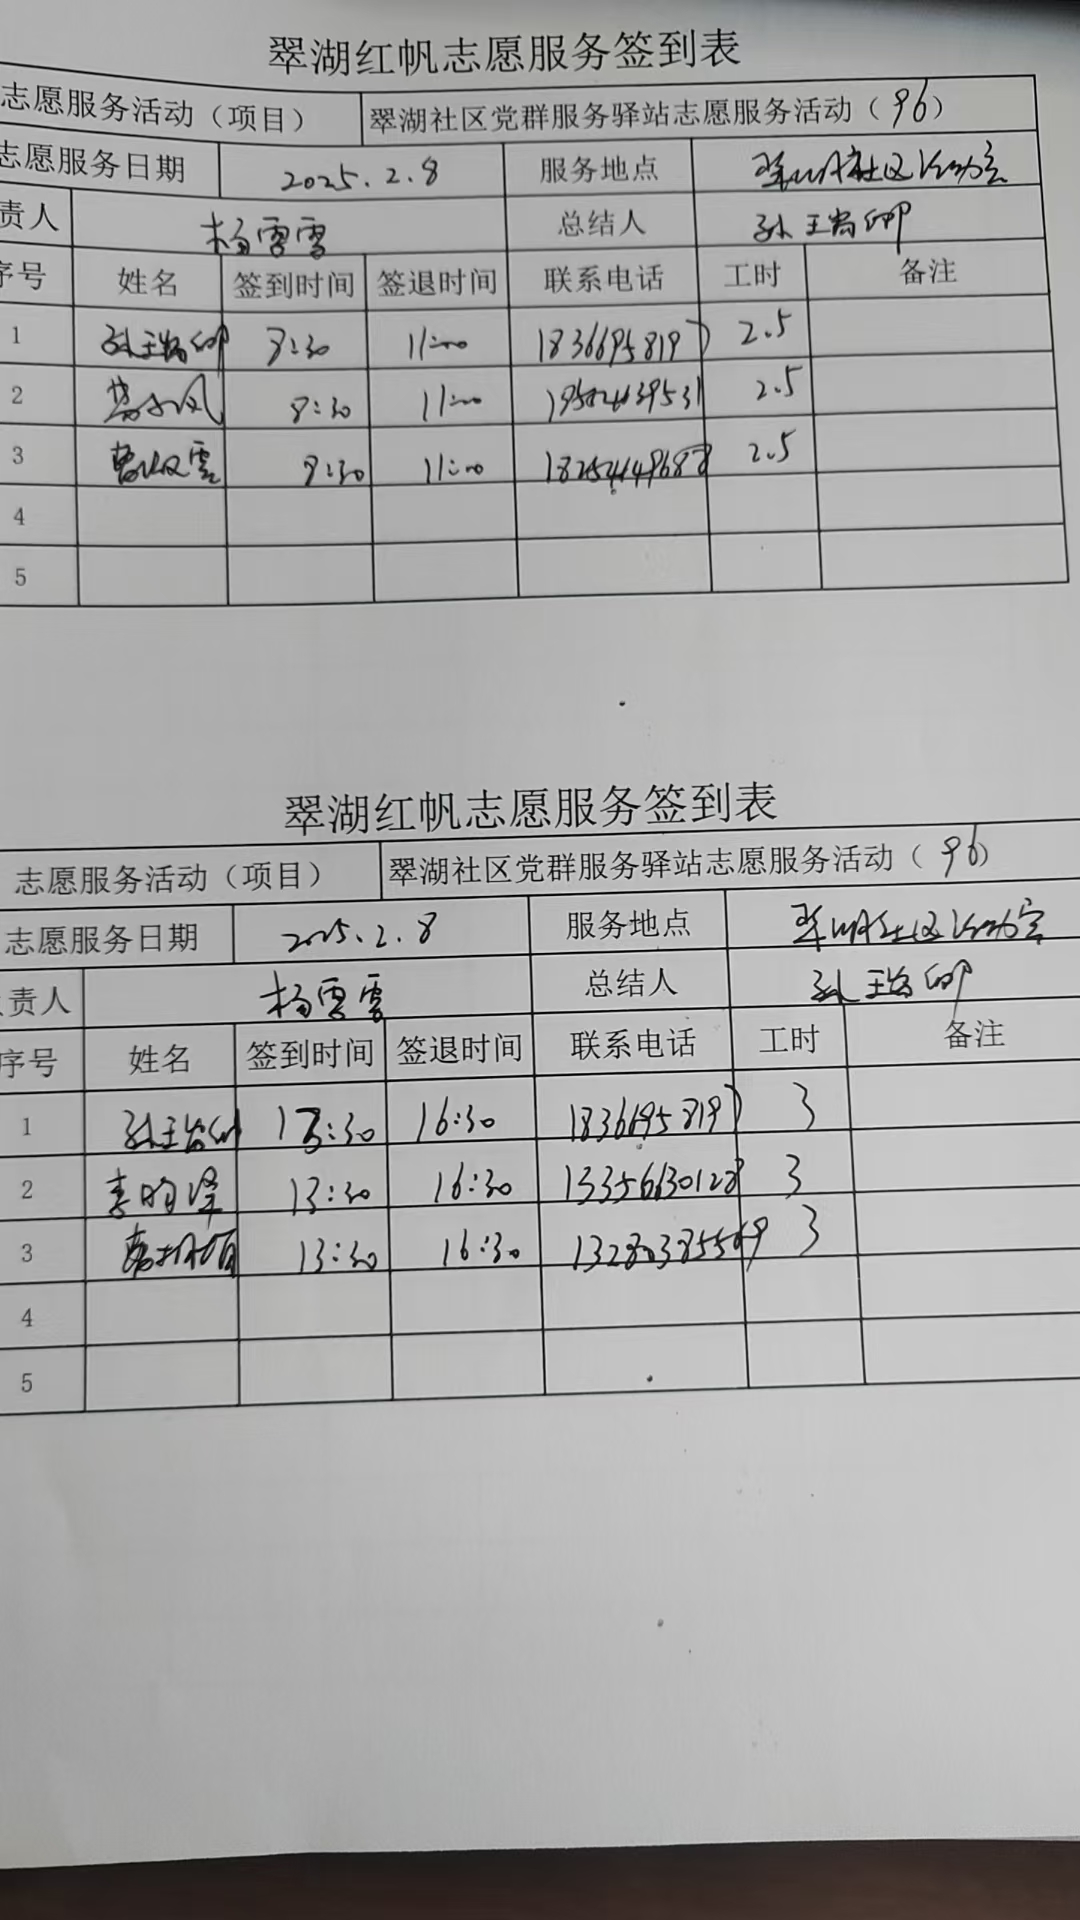 翠湖红帆志愿服务签到表
志愿服务活动（项目） 翠湖社区党群服务驿站志愿服务活动（96）
志愿服务日期 2025.2.8 服务地点 翠湖社区活动室
责人 杨雪雪 总结人 孙
序号 姓名 签到时间 签退时间 联系电话 工时 备注
1 孙 8:30 11:00 18366958197 2.5
2 8:30 11:00 2.5
3 8:30 11:00 2.5
4
5
翠湖红帆志愿服务签到表
志愿服务活动（项目） 翠湖社区党群服务驿站志愿服务活动（96）
志愿服务日期 2025.2.8 服务地点 翠湖社区活动室
责人 杨雪雪 总结人 孙
序号 姓名 签到时间 签退时间 联系电话 工时 备注
1 孙 13:30 16:30 18366958197 3
2 李昀泽 13:30 16:30 15356630128 3
3 13:30 16:30 3
4
5